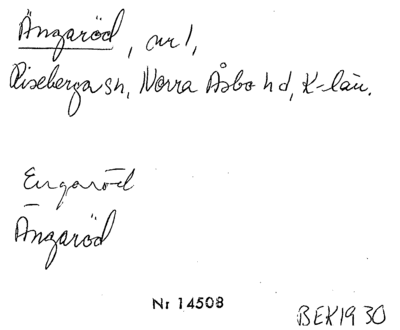 Ängaröd, nr 1,
Riseberga sn, Norra Åsbo hd, K-län.
Engaröd
Ängaröd
Nr 14508
BEK 19 30